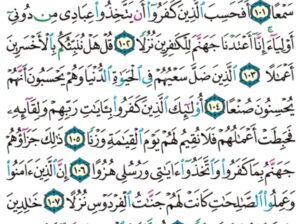 سَمْعًا ١٠١ أَفَحَسِبَ ٱلَّذِينَ كَفَرُوٓا۟ أَن يَتَّخِذُوا۟ عِبَادِى مِن دُونِىٓ
أَوْلِيَآءَ إِنَّآ أَعْتَدْنَا جَهَنَّمَ لِلْكَٰفِرِينَ نُزُلًا ١٠٢ قُلْ هَلْ نُنَبِّئُكُم بِٱلْأَخْسَرِينَ
أَعْمَٰلًا ١٠٣ ٱلَّذِينَ ضَلَّ سَعْيُهُمْ فِى ٱلْحَيَوٰةِ ٱلدُّنْيَا وَهُمْ يَحْسَبُونَ أَنَّهُمْ
يُحْسِنُونَ صُنْعًا ١٠٤ أُو۟لَٰٓئِكَ ٱلَّذِينَ كَفَرُوا۟ بِـَٔايَٰتِ رَبِّهِمْ وَلِقَآئِهِۦ
فَحَبِطَتْ أَعْمَٰلُهُمْ فَلَا نُقِيمُ لَهُمْ يَوْمَ ٱلْقِيَٰمَةِ وَزْنًا ١٠٥ ذَٰلِكَ جَزَآؤُهُمْ
جَهَنَّمُ بِمَا كَفَرُوا۟ وَٱتَّخَذُوٓا۟ ءَايَٰتِى وَرُسُلِى هُزُوًا ١٠٦ إِنَّ ٱلَّذِينَ ءَامَنُوا۟
وَعَمِلُوا۟ ٱلصَّٰلِحَٰتِ كَانَتْ لَهُمْ جَنَّٰتُ ٱلْفِرْدَوْسِ نُزُلًا ١٠٧ خَٰلِدِينَ